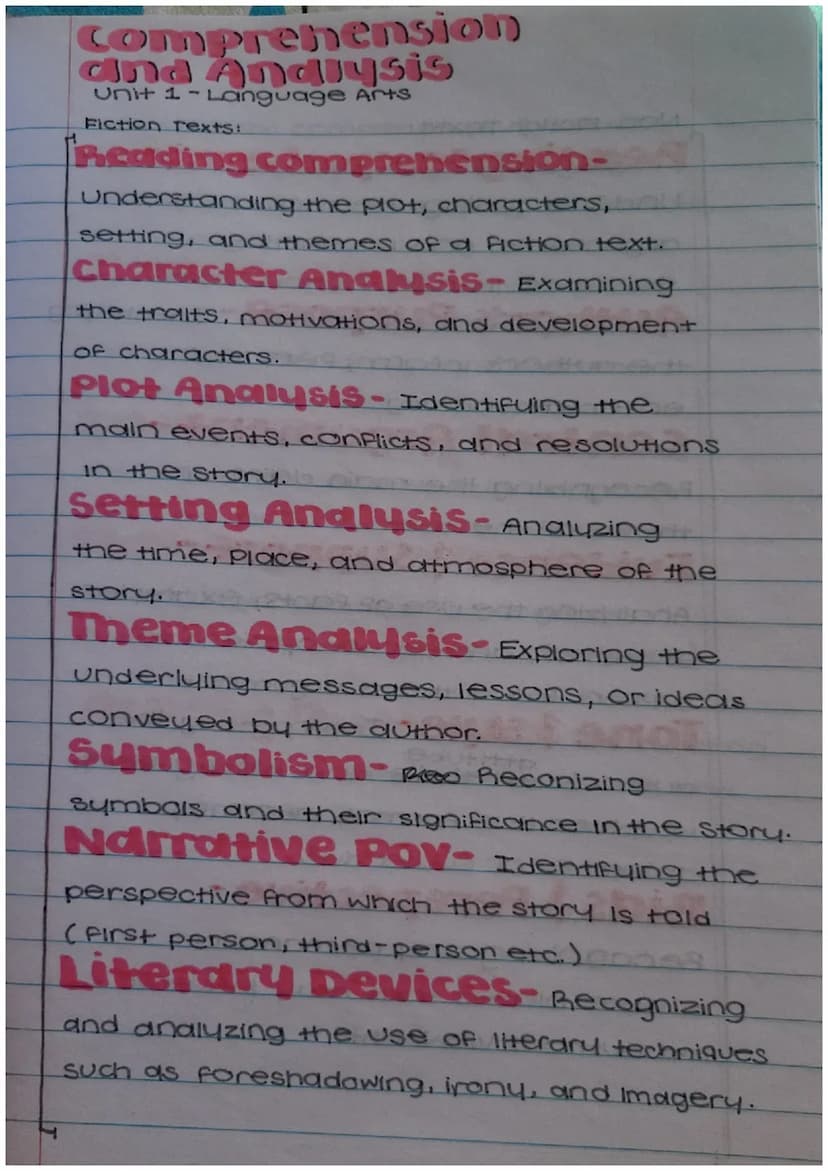 Comprehension
and Analysis
Unit 1 - Language Arts
Fiction Texts:
Reading Comprehension-
Understanding the plot, characters,
setting, and themes of a fiction text.
Character Analysis- Examining
the traits, motivations, and development
of characters.
Plot Analysis- Identifying the
main events, conflicts, and resolutions
in the story.
Setting Analysis- Analyzing
the time, place, and atmosphere of the
story.
Theme Analysis- Exploring the
underlying messages, lessons, or ideas
conveyed by the author.
Symbolism- Reconizing
symbols and their significance in the story.
Narrative POV- Identifying the
perspective from which the story is told
(first person, third-person etc.)
Literary Devices- Recognizing
and analyzing the use of literary techniques
such as foreshadowing, irony, and imagery.